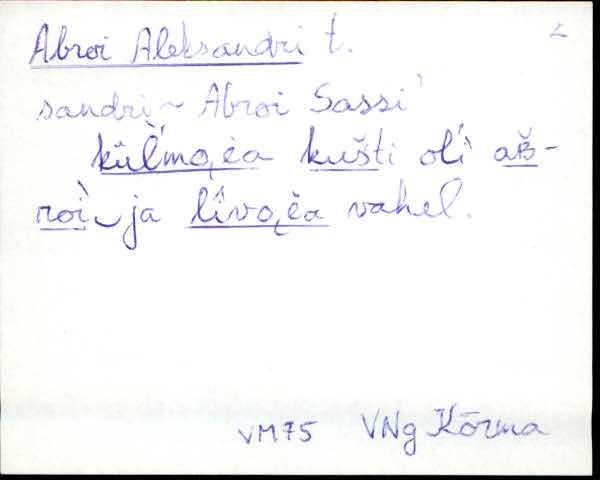 Abroi Aleksandri t.
sandri ~ Abroi Sassi
külmaɛ̀a kušti oli aʙ̆-
roi ja livo̬ɛ̆a vahel.
VM75 VNg Kõrma